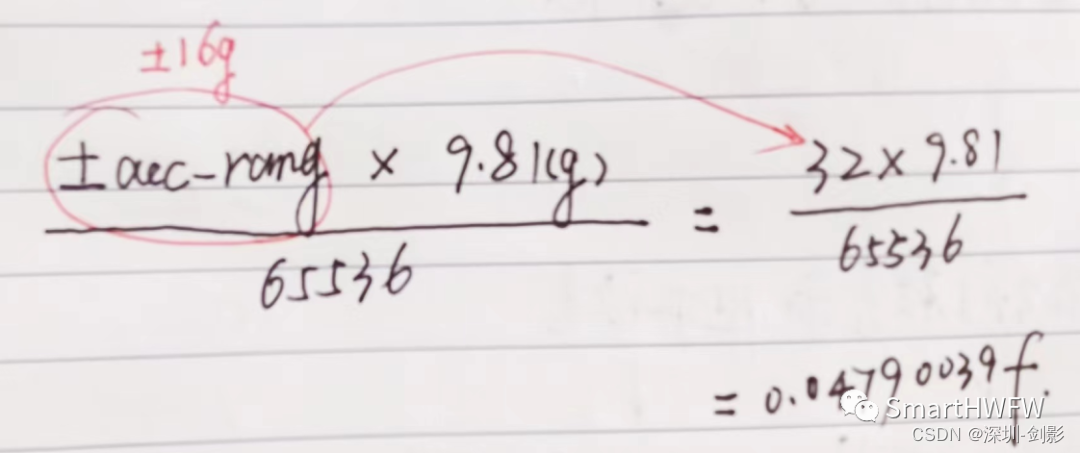 ±16g
±aec-rang × 9.81(g)
65536
=
32×9.81
65536
= 0.04790039f.
SmartHWFW
CSDN @深圳-剑影